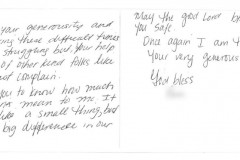 your generosity and
these difficult times
struggling but your help
of other kind folks like
not complain.
you to know how much
mean to me. It
like a small thing, but
big difference in our
May the good Lord
you safe.
Once again I am
your very generous
God bless